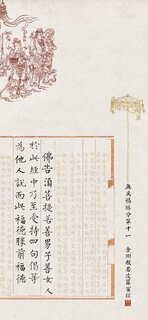 無為福勝分第十一 金剛般若波羅蜜經
佛告須菩提若善男子善女人
於此經中乃至受持四句偈等
為他人說而此福德勝前福德